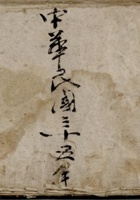 中華民國三十五年